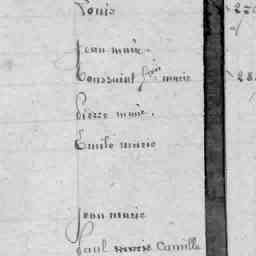 Louis
Jean marie.
Toussaint marie
Pierre marie.
Emile marie
Jean marie
Paul marie Camille